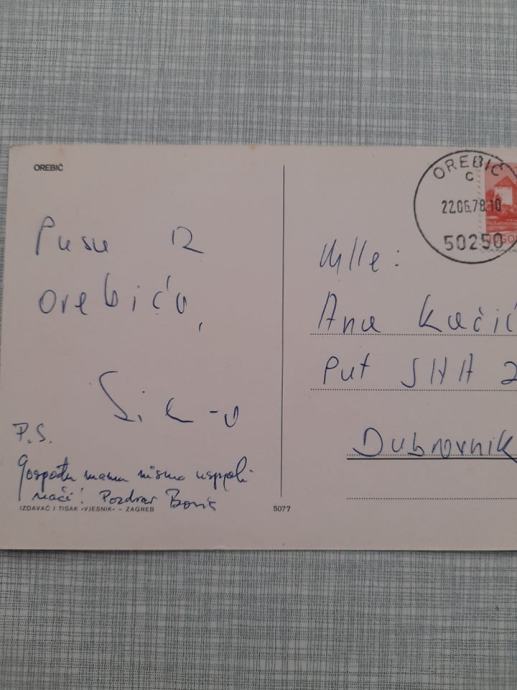 OREBIĆ
OREBIĆ
C
22.06.78.10
50250
Pusu iz
Orebića,
P.S.
Gospođu mamu nismo uspjeli
naći! Pozdrav Boris
Mlle:
Ana Kačić
Put JNA 2
Dubrovnik
IZDAVAČ I TISAK «VJESNIK» – ZAGREB
5077